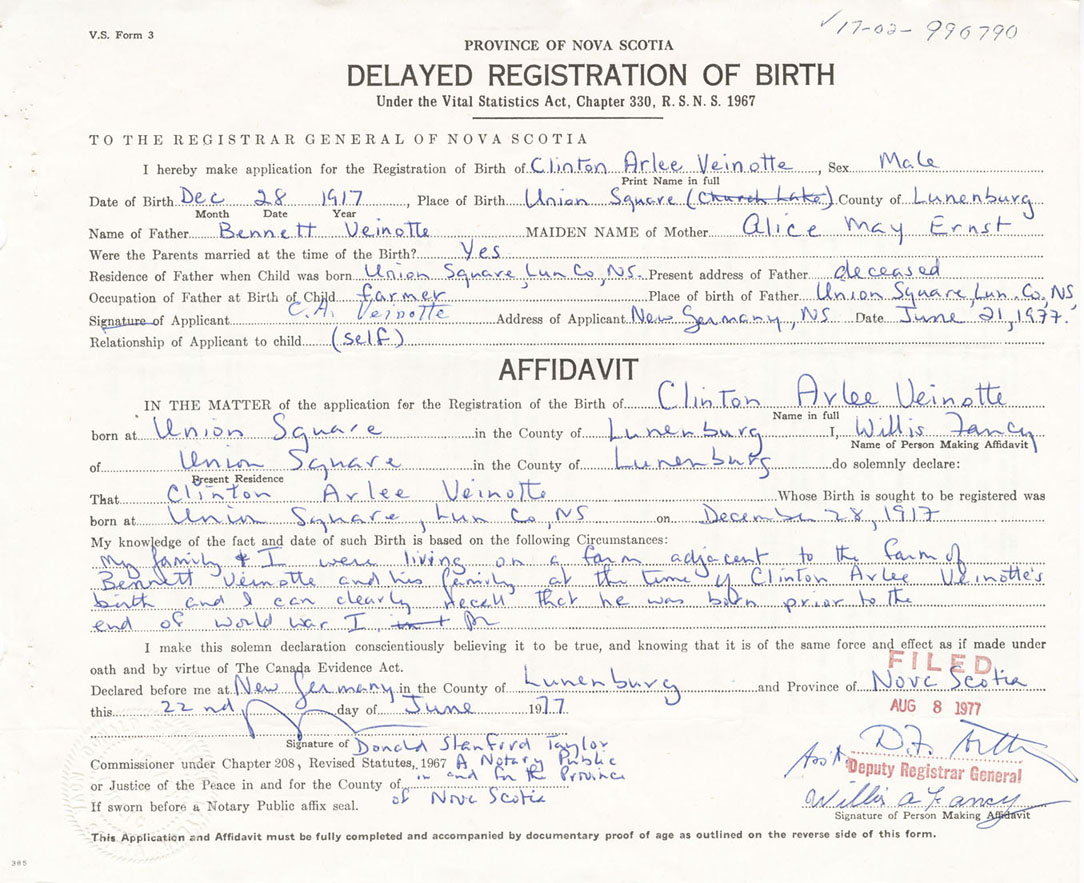 V.S. Form 3
✓17-02-996790
PROVINCE OF NOVA SCOTIA
DELAYED REGISTRATION OF BIRTH
Under the Vital Statistics Act, Chapter 330, R. S. N. S. 1967
TO THE REGISTRAR GENERAL OF NOVA SCOTIA
I hereby make application for the Registration of Birth of Clinton Arlee Veinotte, Sex Male
Print Name in full
Date of Birth Dec 28 1917, Place of Birth Union Square (Church Lake) County of Lunenburg
Month Date Year
Name of Father Bennett Veinotte MAIDEN NAME of Mother Alice May Ernst
Were the Parents married at the time of the Birth? Yes
Residence of Father when Child was born Union Square, Lun Co, NS. Present address of Father deceased
Occupation of Father at Birth of Child farmer Place of birth of Father Union Square, Lun. Co, NS
Signature of Applicant C.A. Veinotte Address of Applicant New Germany, NS Date June 21, 1977.
Relationship of Applicant to child (self)
AFFIDAVIT
IN THE MATTER of the application for the Registration of the Birth of Clinton Arlee Veinotte
Name in full
born at Union Square in the County of Lunenburg I, Willis Fancy
Name of Person Making Affidavit
of Union Square in the County of Lunenburg do solemnly declare:
Present Residence
That Clinton Arlee Veinotte Whose Birth is sought to be registered was
born at Union Square, Lun Co, NS on December 28, 1917
My knowledge of the fact and date of such Birth is based on the following Circumstances:
My family & I were living on a farm adjacent to the farm of
Bennett Veinotte and his family at the time of Clinton Arlee Veinotte's
birth and I can clearly recall that he was born prior to the
end of World War I
I make this solemn declaration conscientiously believing it to be true, and knowing that it is of the same force and effect as if made under
oath and by virtue of The Canada Evidence Act.
FILED
Declared before me at New Germany in the County of Lunenburg and Province of Nova Scotia
this 22nd day of June 1977
AUG 8 1977
Signature of Donald Stanford Taylor
Commissioner under Chapter 208, Revised Statutes, 1967 A Notary Public
Deputy Registrar General
or Justice of the Peace in and for the County of in and for the Province
If sworn before a Notary Public affix seal. of Nova Scotia
Willis A Fancy
Signature of Person Making Affidavit
This Application and Affidavit must be fully completed and accompanied by documentary proof of age as outlined on the reverse side of this form.
385